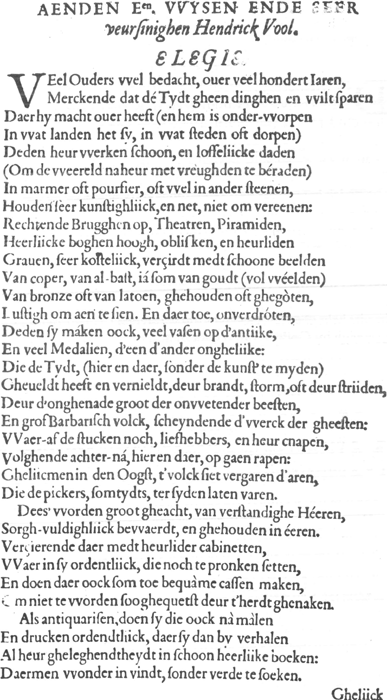 AENDEN En. VVYSEN ENDE SEER
veursinighen Hendrick Vool.
ELEGIE.
VEel Ouders vvel bedacht, ouer veel hondert Iaren,
Merckende dat dé Tydt gheen dinghen en vvilt sparen
Daer hy macht ouer heeft (en hem is onder-vvorpen
In vvat landen het sy, in vvat steden oft dorpen)
Deden heur vverken schoon, en loffeliicke daden
(Om de vveereld na heur met vreughden te béraden)
In marmer oft pourfier, oft vvel in ander steenen,
Houden seer kunstighliick, en net, niet om vereenen:
Rechtende Brugghen op, Theatren, Piramiden,
Heerliicke boghen hoogh, oblisken, en heurliden
Grauen, seer kosteliick, verçirdt medt schoone beelden
Van coper, van al-bast, iá som van goudt (vol vvéelden)
Van bronze oft van latoen, ghehouden oft ghegòten,
Lustigh om aen te sien. En daer toe, onverdróten,
Deden sy máken oock, veel vasen op d'antiike,
En veel Medalien, d'een d'ander ongheliike:
Die de Tydt, (hier en daer, sonder de kunst te myden)
Gheueldt heeft en vernieldt, deur brandt, storm, oft deur striiden,
Deur d'onghenade groot der onvvetender beesten,
En grof Barbarisch volck, scheyndende d'vverck der gheesten:
VVaer-af de stucken noch, liefhebbers, en heur cnapen,
Volghende achter-ná, hier en daer, op gaen rapen:
Gheliicmen in den Oogst, t'volck siet vergaren d'aren,
Die de pickers, somtydts, ter syden laten varen.
Dees' vvorden groot gheacht, van verstandighe Héeren,
Sorgh-vuldighliick bevvaerdt, en ghehouden in éeren.
Verçierende daer medt heurlider cabinetten,
VVaer in sy ordentliick, die noch te pronken setten,
En doen daer oock som toe bequàme cassen maken,
Om niet te vvorden soo ghequetst deur t'herdt ghenaken.
Als antiquarisen, doen sy die oock nà màlen
En drucken ordendtliick, daer sy dan by verhalen
Al heur gheleghendtheydt in schoon heerliike boeken:
Daermen vvonder in vindt, sonder verde te soeken.
Gheliick